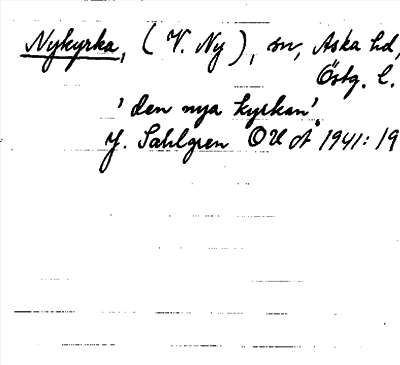 Nykyrka, (V. Ny), sn, Aska hd,
Östg. l.
'den nya kyrkan'.
J. Sahlgren OUÅ 1941: 19